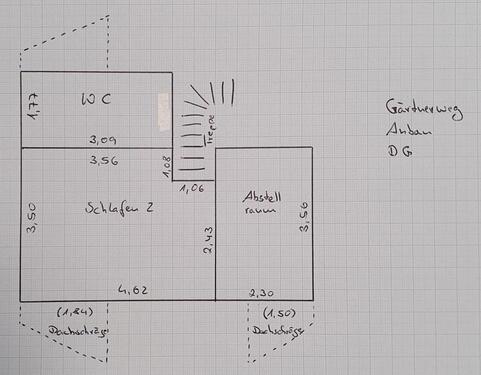 WC
1,77
3,09
Treppe
Gärtnerweg
Anbau
DG
3,56
1,08
1,06
3,50
Schlafen 2
2,43
Abstell
raum
3,56
4,62
2,30
(1,84)
Dachschräge
(1,50)
Dachschräge